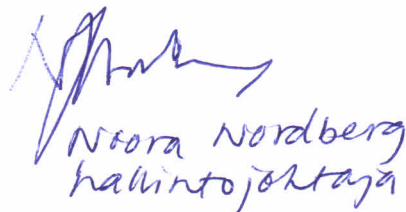 Noora Nordberg
hallintojohtaja